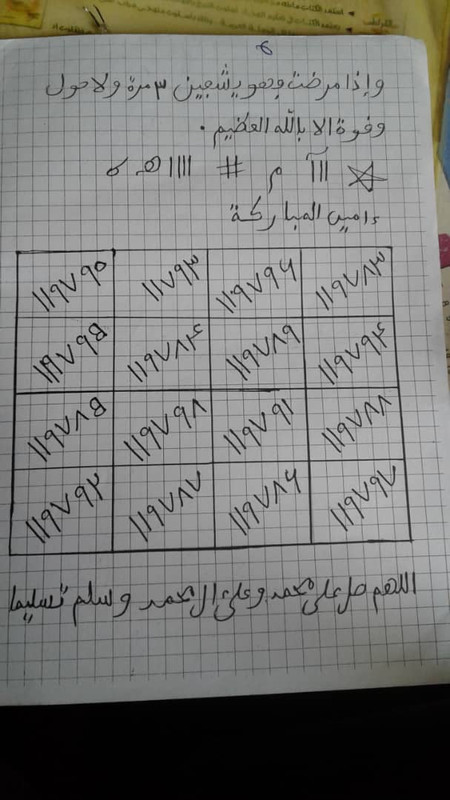 وإذا مرضت فهو يشفين ٣ مرة ولا حول
وقوة الا بالله العظيم .
☆ ااآ م # اااا هـ ه
ءامين المباركة
١١٩٧٨٣ ١١٩٧٩٦ ١١٧٩٣ ١١٩٧٩٠
١١٩٧٩٤ ١١٩٧٨٩ ١١٩٧٨٤ ١١٩٧٩٥
١١٩٧٨٨ ١١٩٧٩١ ١١٩٧٩٨ ١١٩٧٨٥
١١٩٧٩٧ ١١٩٧٨٦ ١١٩٧٨٧ ١١٩٧٩٢
اللهم صل على محمد وعلى ال محمد وسلم تسليما